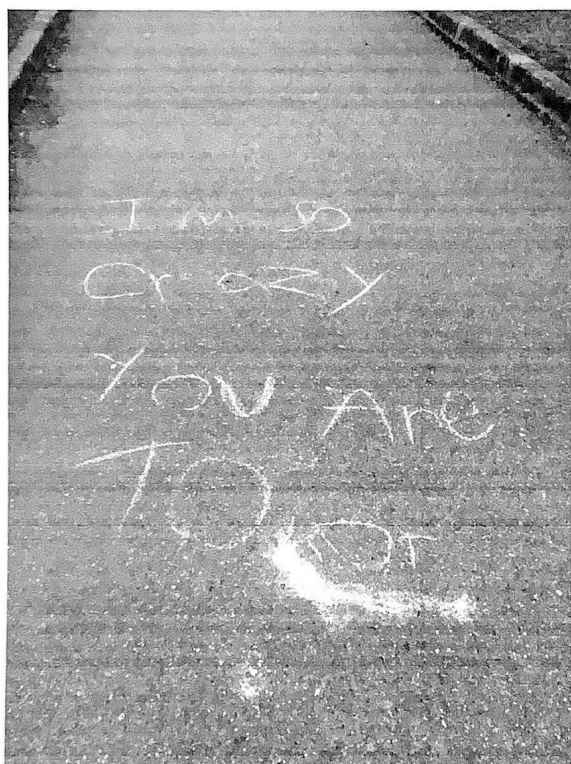 Im so
Crazy
You Are
TO